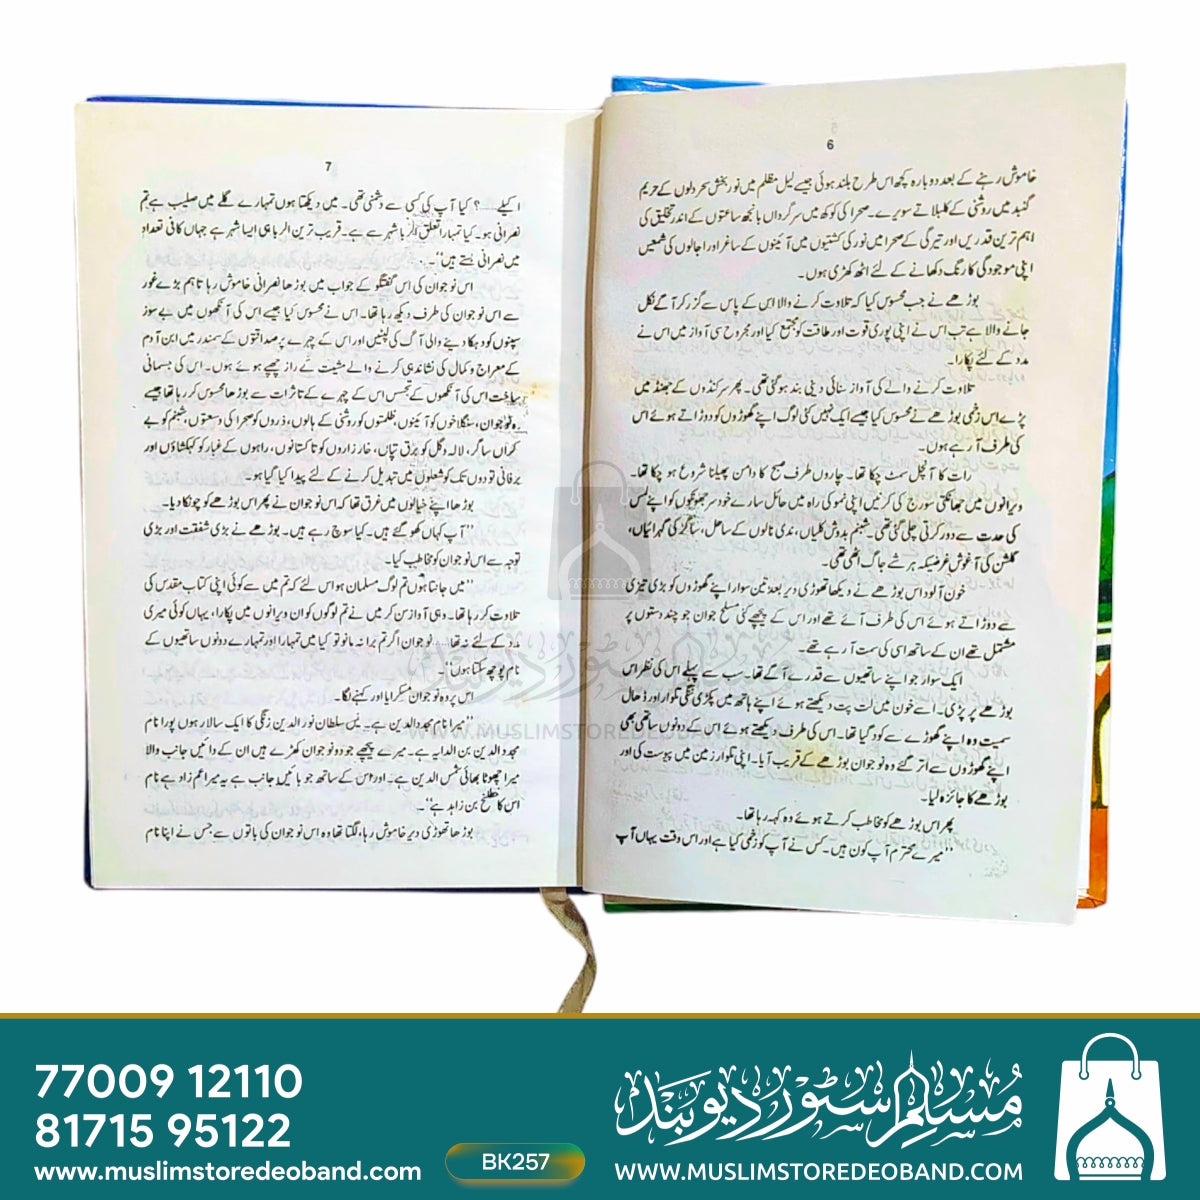 6
خاموش رہنے کے بعد دوبارہ کچھ اس طرح بلند ہوئی جیسے لیل مظلم میں نور بخش سحر دلوں کے حریم
گنبد میں روشنی کے کلبلاتے سویرے۔ صحرا کی کوکھ میں سرگرداں بانجھ ساعتوں کے اندر تخلیق کی
اہم ترین قدریں اور تیرگی کے صحرا میں نور کی کشتیوں میں آئینوں کے ساغر اور اجالوں کی شمعیں
اپنی موجودگی کا رنگ دکھانے کے لئے اٹھ کھڑی ہوں۔
بوڑھے نے جب محسوس کیا کہ تلاوت کرنے والا اس کے پاس سے گزر کر آگے نکل
جانے والا ہے تب اس نے اپنی پوری قوت اور طاقت کو مجتمع کیا اور مجروح سی آواز میں اس نے
مدد کے لئے پکارا۔
تلاوت کرنے والے کی آواز سنائی دینی بند ہو گئی تھی۔ پھر سرکنڈوں کے جھنڈ میں
پڑے اس زخمی بوڑھے نے محسوس کیا جیسے ایک نہیں کئی لوگ اپنے گھوڑوں کو دوڑاتے ہوئے اس
کی طرف آ رہے ہوں۔
رات کا آنچل سمٹ چکا تھا۔ چاروں طرف صبح کا دامن پھیلنا شروع ہو چکا تھا۔
ویرانوں میں جھانکتی سورج کی کرنیں اپنی نمو کی راہ میں حائل سارے خود سر جھونکوں کو اپنے لمس
کی حدت سے دور کرتی چلی گئی تھی۔ شبنم بدوش کلیاں، ندی نالوں کے ساحل، ساگر کی گہرائیاں،
گلشن کی آغوش غرضیکہ ہر شے جاگ اٹھی تھی۔
خون آلود اس بوڑھے نے دیکھا تھوڑی دیر بعد تین سوار اپنے گھوڑوں کو بڑی تیزی
سے دوڑاتے ہوئے اس کی طرف آئے تھے اور اس کے پیچھے کئی مسلح جوان جو چند دستوں پر
مشتمل تھے ان کے ساتھ اسی کی سمت آ رہے تھے۔
ایک سوار جو اپنے ساتھیوں سے قدرے آگے تھا۔ سب سے پہلے اس کی نظر اس
بوڑھے پر پڑی۔ اسے خون میں لت پت دیکھتے ہوئے اپنے ہاتھ میں پکڑی ننگی تلوار اور ڈھال
سمیت وہ اپنے گھوڑے سے کود گیا تھا۔ اس کی طرف دیکھتے ہوئے اس کے دونوں ساتھی بھی
اپنے گھوڑوں سے اتر گئے وہ نوجوان بوڑھے کے قریب آیا۔ اپنی تلوار زمین میں پیوست کی اور
بوڑھے کا جائزہ لیا۔
پھر اس بوڑھے کو مخاطب کرتے ہوئے وہ کہہ رہا تھا۔
”میرے محترم آپ کون ہیں۔ کس نے آپ کو زخمی کیا ہے اور اس وقت یہاں آپ
7
اکیلے ؟ کیا آپ کی کسی سے دشمنی تھی۔ میں دیکھتا ہوں تمہارے گلے میں صلیب ہے تم
نصرانی ہو۔ کیا تمہارا تعلق الرہا شہر سے ہے۔ قریب ترین الرہا ہی ایسا شہر ہے جہاں کافی تعداد
میں نصرانی بستے ہیں“۔
اس نوجوان کی اس گفتگو کے جواب میں بوڑھا نصرانی خاموش رہا تاہم بڑے غور
سے اس نوجوان کی طرف دیکھ رہا تھا۔ اس نے محسوس کیا جیسے اس کی آنکھوں میں بے سوز
سپنوں کو دہکا دینے والی آگ کی لپٹیں اور اس کے چہرے پر صداقتوں کے سمندر میں ابن آدم
کے معراج و کمال کی نشاندہی کرنے والے مشیت کے راز چھپے ہوئے ہوں۔ اس کی جسمانی
ساخت اس کی آنکھوں کے تجسس اس کے چہرے کے تاثرات سے بوڑھا محسوس کر رہا تھا جیسے
وہ نوجوان، سنگلاخوں کو آئینوں، ظلمتوں کو روشنی کے ہالوں، ذروں کو صحرا کی وسعتوں، شبنم کو بے
کراں ساگر، لالہ و گل کو برق تپاں، خارزاروں کو تاکستانوں، راہوں کے غبار کو کہکشاؤں اور
برفانی تودوں تک کو شعلوں میں تبدیل کرنے کے لئے پیدا کیا گیا ہو۔
بوڑھا اپنے خیالوں میں غرق تھا کہ اس نوجوان نے پھر اس بوڑھے کو چونکا دیا۔
”آپ کہاں کھو گئے ہیں۔ کیا سوچ رہے ہیں۔ بوڑھے نے بڑی شفقت اور بڑی
توجہ سے اس نوجوان کو مخاطب کیا۔
”میں جانتا ہوں تم لوگ مسلمان ہو اس لئے کہ تم میں سے کوئی اپنی کتاب مقدس کی
تلاوت کر رہا تھا۔ وہی آواز سن کر میں نے تم لوگوں کو ان ویرانوں میں پکارا، یہاں کوئی میری
مدد کے لئے نہ تھا۔ نوجوان اگر تم برا نہ مانو تو کیا میں تمہارا اور تمہارے دونوں ساتھیوں کے
نام پوچھ سکتا ہوں“۔
اس پر وہ نوجوان مسکرایا اور کہنے لگا۔
”میرا نام مجدالدین ہے۔ میں سلطان نورالدین زنگی کا ایک سالار ہوں پورا نام
مجدالدین بن الدایہ ہے۔ میرے پیچھے جو دو نوجوان کھڑے ہیں ان کے دائیں جانب والا
میرا چھوٹا بھائی شمس الدین ہے۔ اور اس کے ساتھ جو بائیں جانب ہے یہ میرا عم زاد ہے نام
اس کا بن زاہد ہے“۔
بوڑھا تھوڑی دیر خاموش رہا، لگتا تھا وہ اس نوجوان کی باتوں سے جس نے اپنا نام
مسلم سٹور دیوبند
WWW.MUSLIMSTOREDEOBAND.COM
77009 12110
81715 95122
www.muslimstoredeoband.com
BK257
مسلم سٹور دیوبند
WWW.MUSLIMSTOREDEOBAND.COM